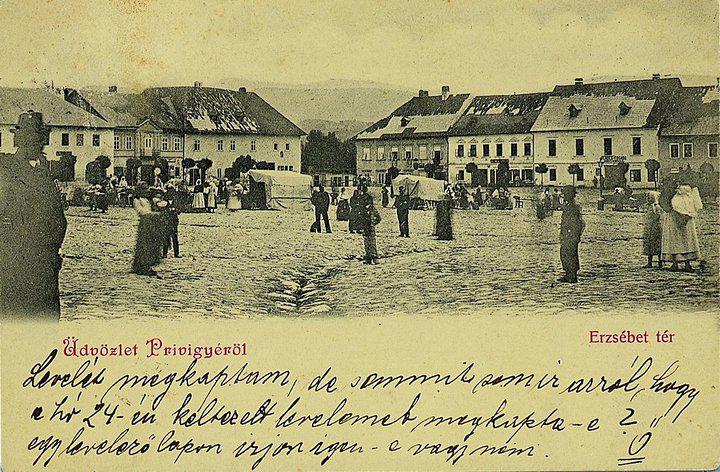 Üdvözlet Privigyéről
Erzsébet tér
Levelét megkaptam, de semmit sem ir arról, hogy
e hó 24-én keltezett levelemet megkapta-e ?
egy levelező lapon irjon igen-e vagy nem.